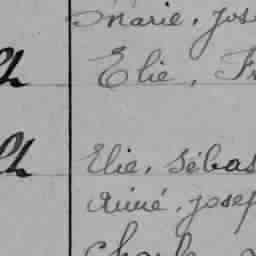 Marie, Jos
Elie, Fr
Elie, Sébas
Aimé, Josep
Charle